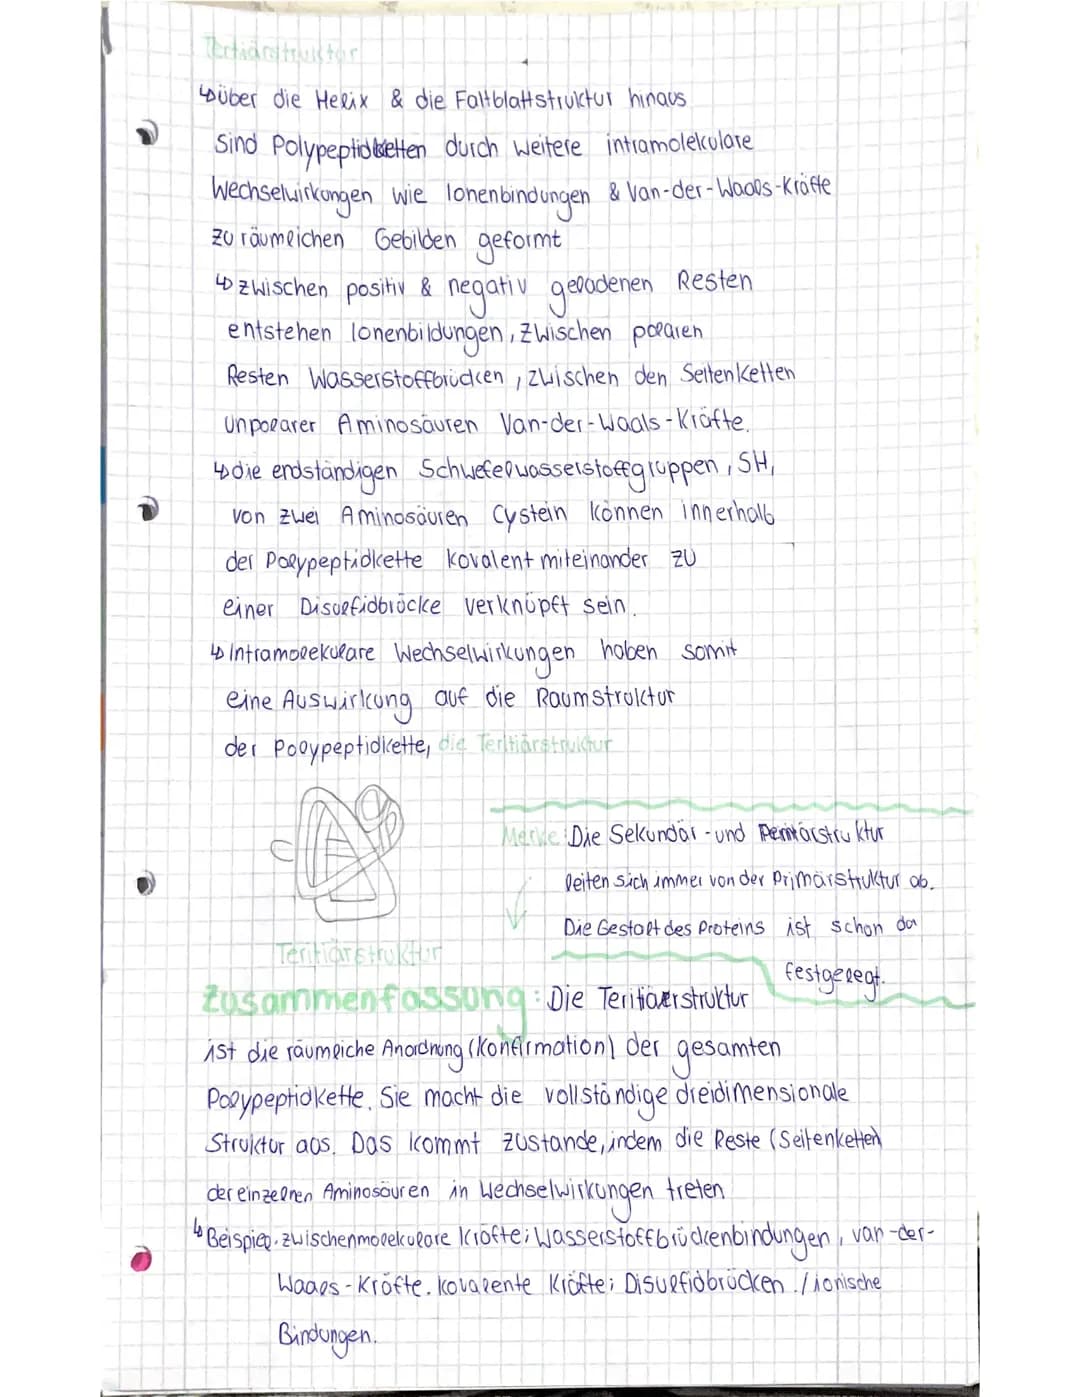 Tertiärstruktur
↳über die Helix & die Faltblattstruktur hinaus
sind Polypeptidketten durch weitere intramolekulare
Wechselwirkungen wie Ionenbindungen & Van-der-Waals-Kräfte
zu räumlichen Gebilden geformt
↳zwischen positiv & negativ geladenen Resten
entstehen Ionenbildungen, zwischen polaren
Resten Wasserstoffbrücken, zwischen den Seitenketten
unpolarer Aminosäuren Van-der-Waals-Kräfte.
↳die endständigen Schwefelwasserstoffgruppen, SH,
von zwei Aminosäuren Cystein können innerhalb
der Polypeptidkette kovalent miteinander zu
einer Disulfidbrücke verknüpft sein.
↳Intramolekulare Wechselwirkungen haben somit
eine Auswirkung auf die Raumstruktur
der Polypeptidkette, die Tertiärstruktur
Merke: Die Sekundär-und
leiten sich immer von der Primärstruktur ab.
Die Gestalt des Proteins ist schon da
festgelegt.
Teritiärstruktur
Zusammenfassung: Die Teritiärstruktur
ist die räumliche Anordnung (Konfirmation) der gesamten
Polypeptidkette. Sie macht die vollständige dreidimensionale
Struktur aus. Das kommt zustande, indem die Reste (Seitenketten)
der einzelnen Aminosäuren in Wechselwirkungen treten
↳Beispiel: zwischenmolekulare Kräfte; Wasserstoffbrückenbindungen, van-der-
Waals-Kräfte. kovalente Kräfte; Disulfidbrücken ./ionische
Bindungen.